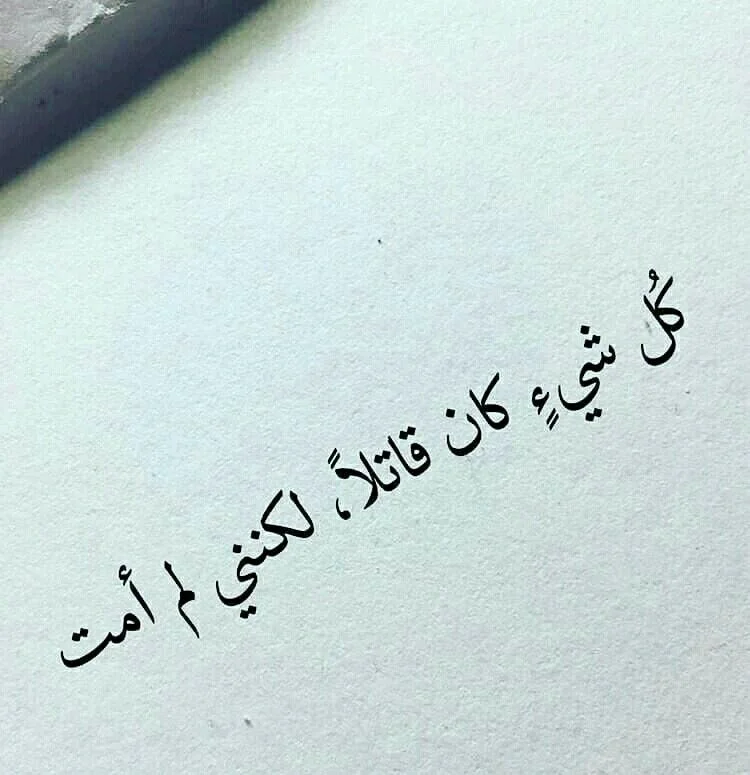 كُل شيءٍ كان قاتلاً، لكنني لم أمت